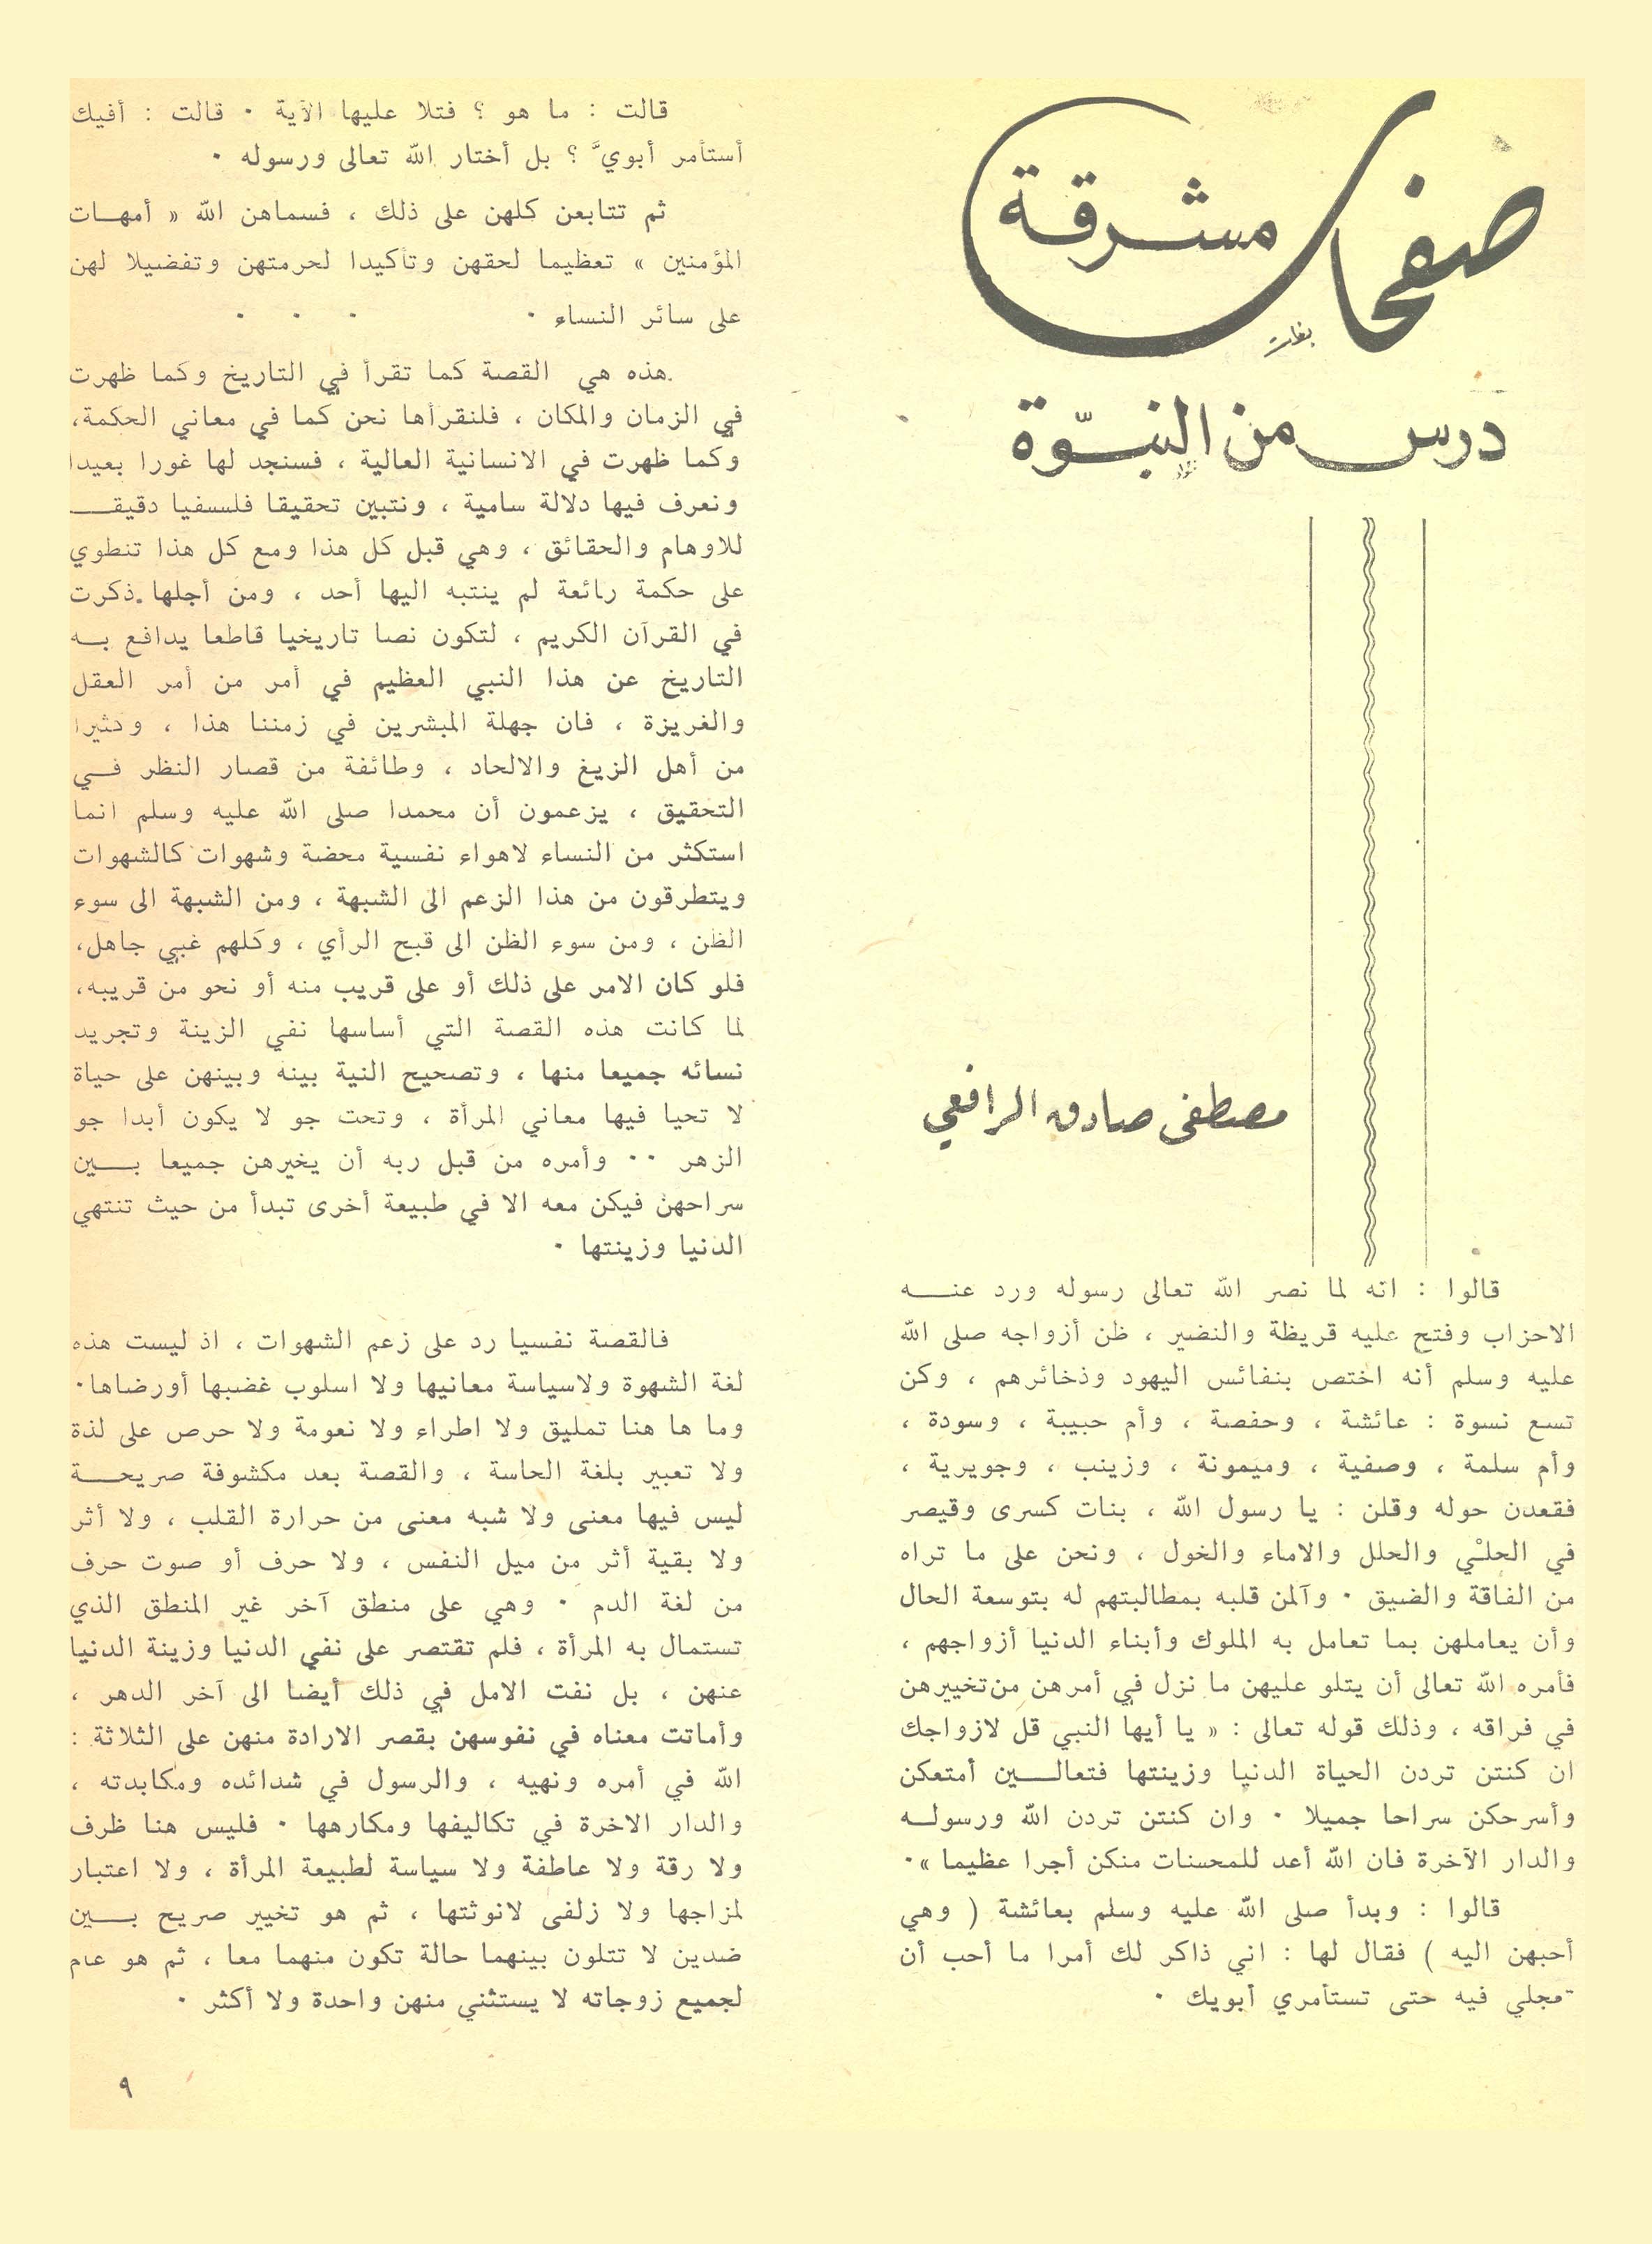 صفحات مشرقة
درس من النبوّة
مصطفى صادق الرافعي
قالوا : انه لما نصر الله تعالى رسوله ورد عنـــه
الاحزاب وفتح عليه قريظة والنضير ، ظن أزواجه صلى الله
عليه وسلم أنه اختص بنفائس اليهود وذخائرهم ، وكن
تسع نسوة : عائشة ، وحفصة ، وأم حبيبة ، وسودة ،
وأم سلمة ، وصفية ، وميمونة ، وزينب ، وجويرية ،
فقعدن حوله وقلن : يا رسول الله ، بنات كسرى وقيصر
في الحلْي والحلل والاماء والخول ، ونحن على ما تراه
من الفاقة والضيق . وآلمن قلبه بمطالبتهم له بتوسعة الحال
وأن يعاملهن بما تعامل به الملوك وأبناء الدنيا أزواجهم ،
فأمره الله تعالى أن يتلو عليهن ما نزل في أمرهن من تخييرهن
في فراقه ، وذلك قوله تعالى : « يا أيها النبي قل لازواجك
ان كنتن تردن الحياة الدنيا وزينتها فتعالــــين أمتعكن
وأسرحكن سراحا جميلا . وان كنتن تردن الله ورسولــه
والدار الآخرة فان الله أعد للمحسنات منكن أجرا عظيما » .
قالوا : وبدأ صلى الله عليه وسلم بعائشة ( وهي
أحبهن اليه ) فقال لها : اني ذاكر لك أمرا ما أحب أن
تعجلي فيه حتى تستأمري أبويك .
قالت : ما هو ؟ فتلا عليها الآية . قالت : أفيك
أستأمر أبويَّ ؟ بل أختار الله تعالى ورسوله .
ثم تتابعن كلهن على ذلك ، فسماهن الله « أمهــات
المؤمنين » تعظيما لحقهن وتأكيدا لحرمتهن وتفضيلا لهن
على سائر النساء . . . .
هذه هي القصة كما تقرأ في التاريخ وكما ظهرت
في الزمان والمكان ، فلنقرأها نحن كما في معاني الحكمة،
وكما ظهرت في الانسانية العالية ، فسنجد لها غورا بعيدا
ونعرف فيها دلالة سامية ، ونتبين تحقيقا فلسفيا دقيقــــ
للاوهام والحقائق ، وهي قبل كل هذا ومع كل هذا تنطوي
على حكمة رائعة لم ينتبه اليها أحد ، ومن أجلها ذكرت
في القرآن الكريم ، لتكون نصا تاريخيا قاطعا يدافع بــه
التاريخ عن هذا النبي العظيم في أمر من أمر العقل
والغريزة ، فان جهلة المبشرين في زمننا هذا ، وكثيرا
من أهل الزيغ والالحاد ، وطائفة من قصار النظر فــي
التحقيق ، يزعمون أن محمدا صلى الله عليه وسلم انما
استكثر من النساء لاهواء نفسية محضة وشهوات كالشهوات
ويتطرقون من هذا الزعم الى الشبهة ، ومن الشبهة الى سوء
الظن ، ومن سوء الظن الى قبح الرأي ، وكلهم غبي جاهل،
فلو كان الامر على ذلك أو على قريب منه أو نحو من قريبه،
لما كانت هذه القصة التي أساسها نفي الزينة وتجريد
نسائه جميعا منها ، وتصحيح النية بينه وبينهن على حياة
لا تحيا فيها معاني المرأة ، وتحت جو لا يكون أبدا جو
الزهر .. وأمره من قبل ربه أن يخيرهن جميعا بــــين
سراحهن فيكن معه الا في طبيعة أخرى تبدأ من حيث تنتهي
الدنيا وزينتها .
فالقصة نفسيا رد على زعم الشهوات ، اذ ليست هذه
لغة الشهوة ولاسياسة معانيها ولا اسلوب غضبها أورضاها.
وما ها هنا تمليق ولا اطراء ولا نعومة ولا حرص على لذة
ولا تعبير بلغة الحاسة ، والقصة بعد مكشوفة صريحــــة
ليس فيها معنى ولا شبه معنى من حرارة القلب ، ولا أثر
ولا بقية أثر من ميل النفس ، ولا حرف أو صوت حرف
من لغة الدم . وهي على منطق آخر غير المنطق الذي
تستمال به المرأة ، فلم تقتصر على نفي الدنيا وزينة الدنيا
عنهن ، بل نفت الامل في ذلك أيضا الى آخر الدهر ،
وأماتت معناه في نفوسهن بقصر الارادة منهن على الثلاثة :
الله في أمره ونهيه ، والرسول في شدائده ومكابدته ،
والدار الاخرة في تكاليفها ومكارهها . فليس هنا ظرف
ولا رقة ولا عاطفة ولا سياسة لطبيعة المرأة ، ولا اعتبار
لمزاجها ولا زلفى لانوثتها ، ثم هو تخيير صريح بــــين
ضدين لا تتلون بينهما حالة تكون منهما معا ، ثم هو عام
لجميع زوجاته لا يستثني منهن واحدة ولا أكثر .
٩